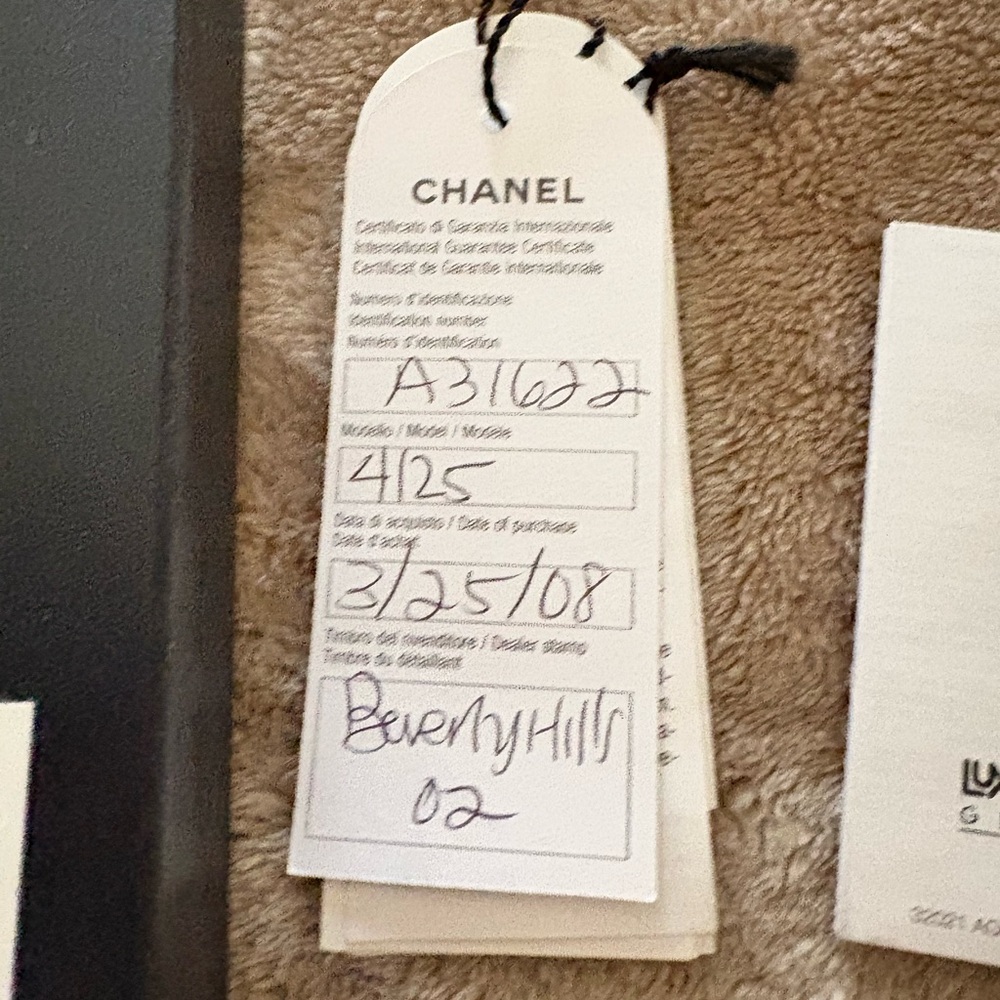 CHANEL
Certificato di Garanzia Internazionale
International Guarantee Certificate
Certificat de Garantie Internationale
Numero d'identificazione
Identification number
Numéro d'identification
A31622
Modello / Model / Modele
4125
Data di acquisto / Date of purchase
Date d'achat
3/25/08
Timbro del rivenditore / Dealer stamp
Timbre du détaillant
Beverly Hills
02
LUX
G
32021 AC